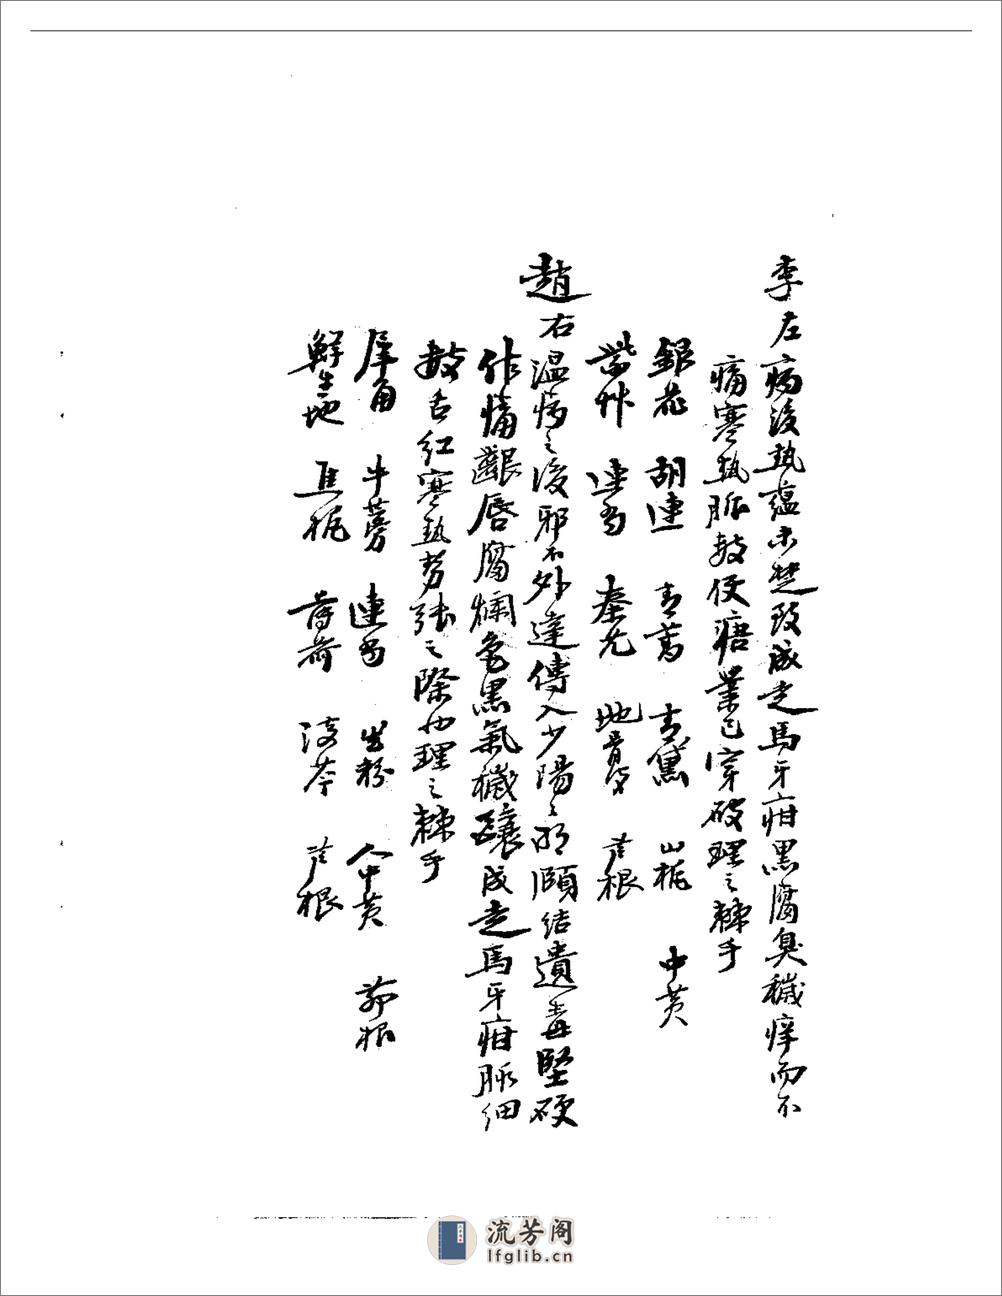 李左病後熱蘊未楚致成走馬牙疳黑腐臭穢痒而不
痛寒熱脈数便溏業已穿破理之棘手
銀花 胡連 青蒿 青黛 山梔 中黄
紫艸 連召 秦艽 地骨皮 芦根
趙右温病之後邪不外達傳入少陽陽明頤結遺毒堅硬
作痛齦唇腐爛色黒氣穢釀成走馬牙疳脈細
数舌紅寒熱勢張之際也理之棘手
犀角 牛蒡 連召 花粉 人中黄 茆根
鮮生地 焦梔 薄荷 淡芩 芦根
流芳阁
lfglib.cn